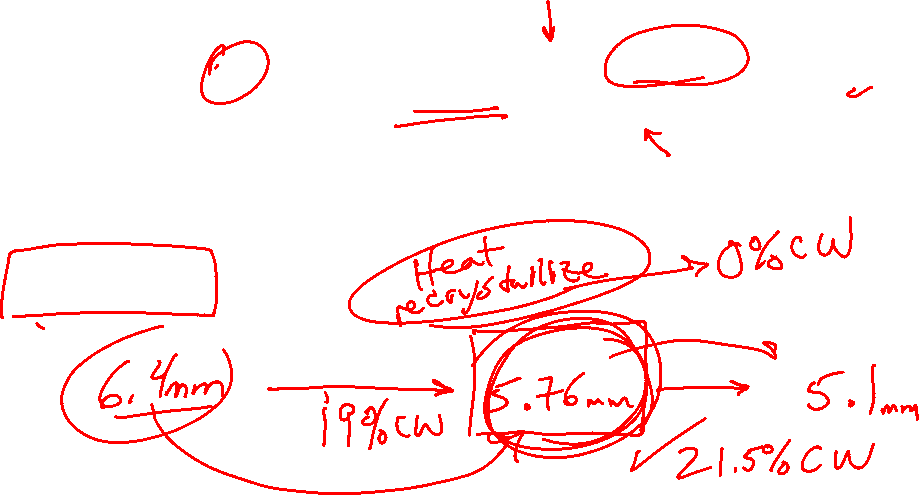 Heat
recrystallize
0%CW
6.4mm
19%CW
5.76mm
5.1mm
21.5%CW